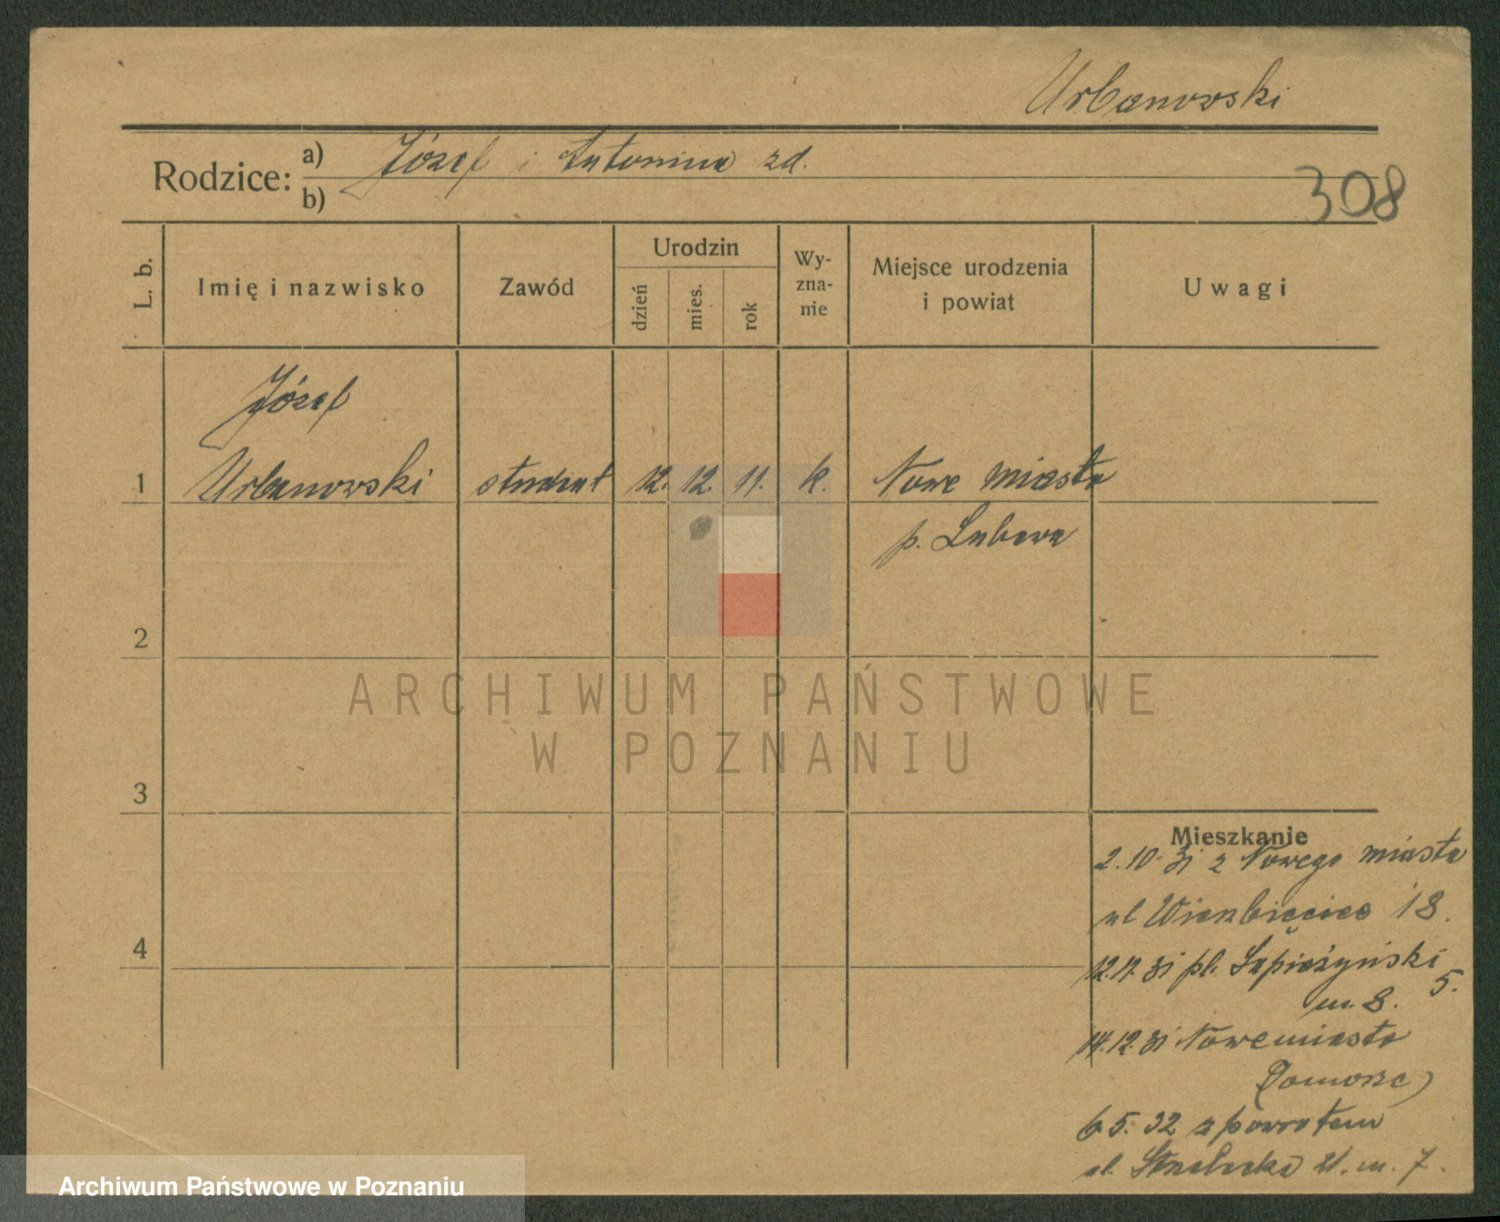 Urbanowski
Rodzice: a) Józef i Antonina zd.
b)
308
L. b. Imię i nazwisko Zawód Urodzin dzień mies. rok Wy-zna-nie Miejsce urodzenia i powiat Uwagi
Józef
1 Urbanowski student 12. 12. 11. k. Nowe miasto
p. Lubawa
2
3
4
Mieszkanie
2.10.31 z Nowego miasta
ul Wierzbięcice 18.
12.11.31 pl. Sapieżyński 5.
m. 8.
14.12.31 Nowemiasto
(Pomorze)
6.5.32 z powrotem
ul. Strzelecka 21. m. 7.
ARCHIWUM PAŃSTWOWE
W POZNANIU
Archiwum Państwowe w Poznaniu